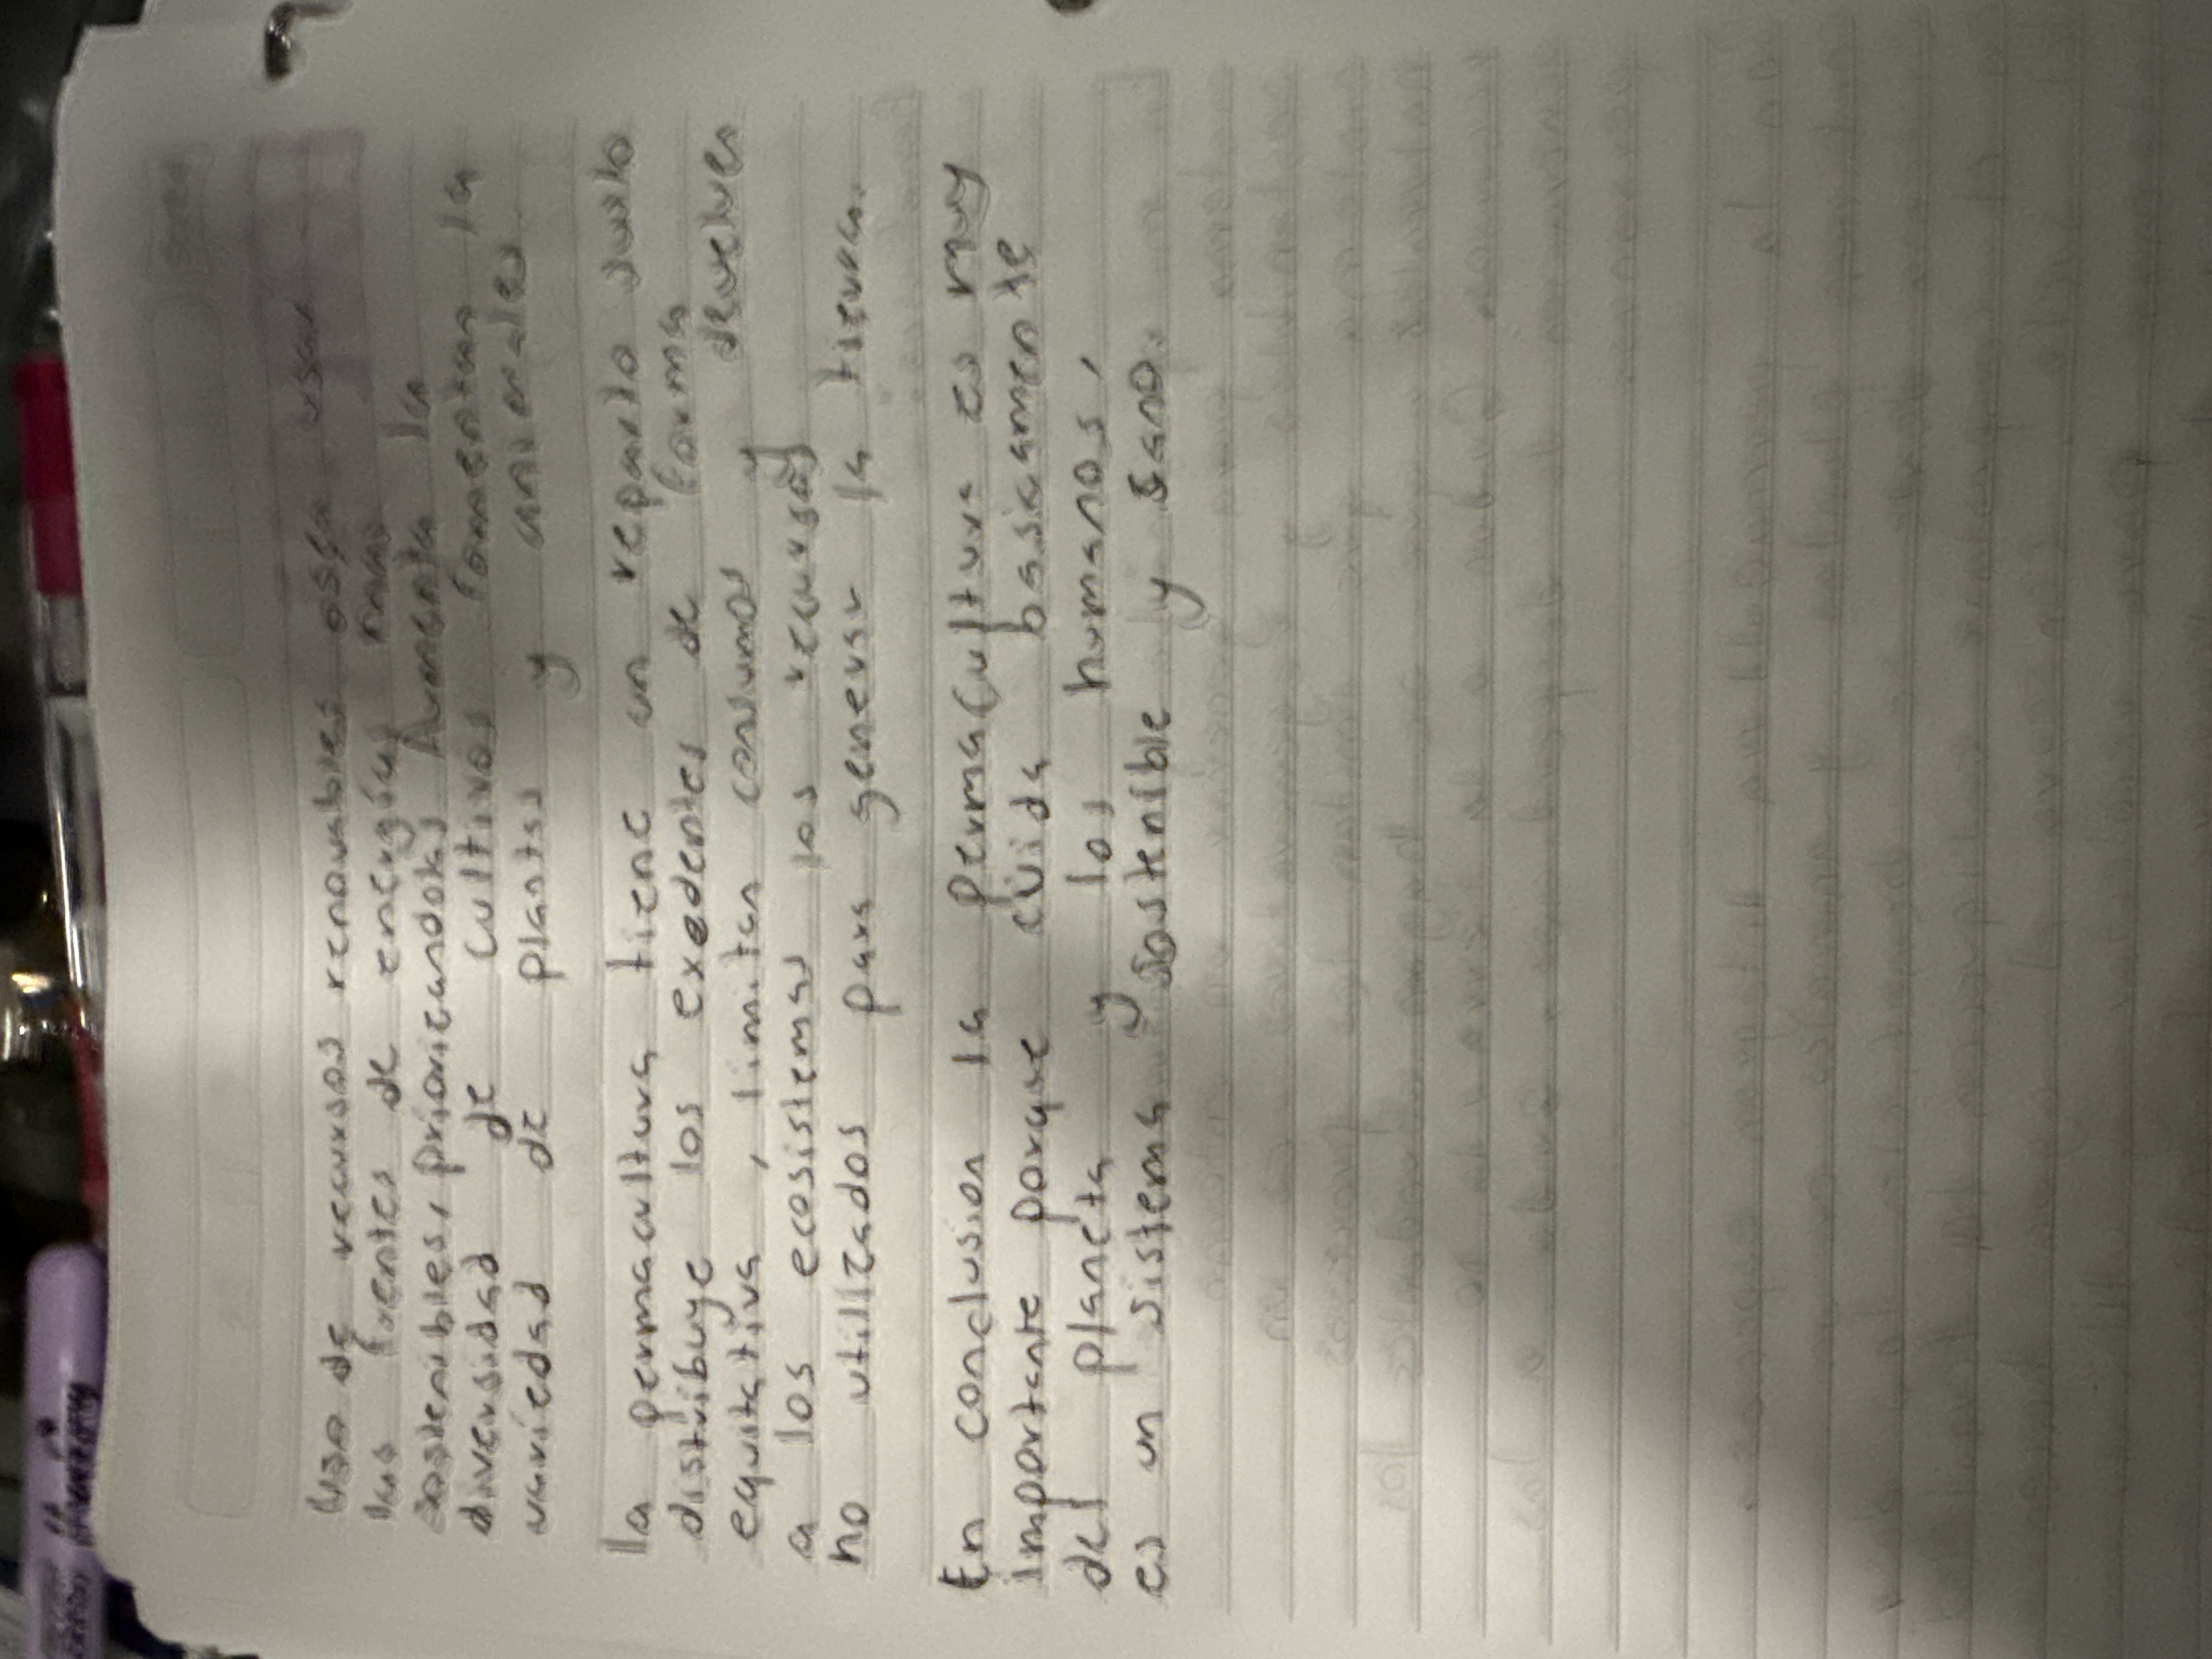 Uso de recursos renovables osea usar
las fuentes de energía mas
sostenibles, prioricandolas Aumenta la
diversidad de cultivos fomentan la
variedad de plantas y animales
la permacultura tiene un reparto justo
distribuye los exedentes de forma
equitativa, limitan consumos y devuelves
a los ecosistemas los recursos
no utilizados para generar la tierra.
En conclusion la permacultura es muy
importante porque cuida basicamente
del planeta y los humanos,
es un sistema y sostenible y sano.